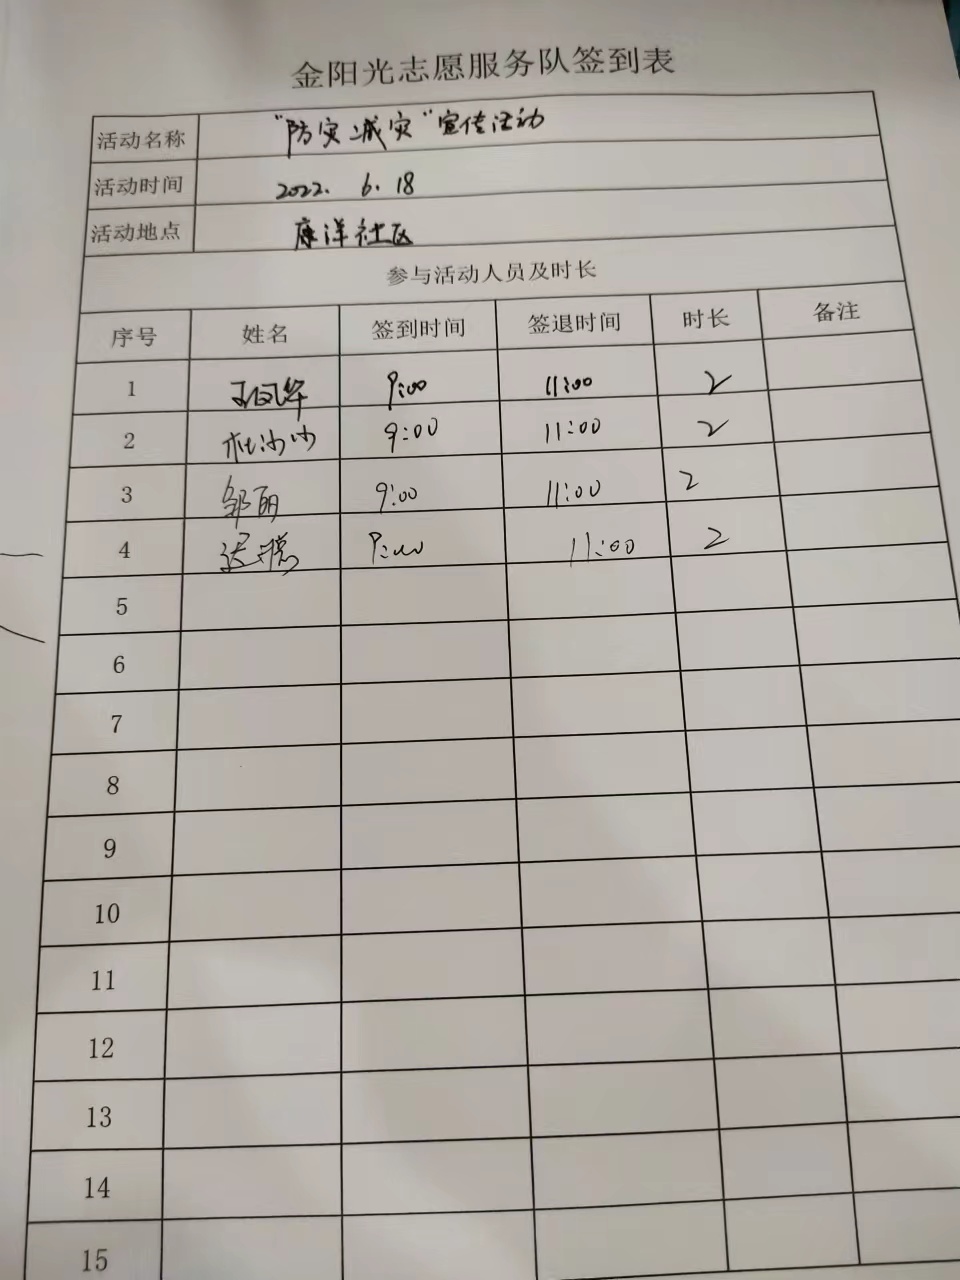 金阳光志愿服务队签到表
活动名称 “防灾减灾”宣传活动
活动时间 2022. 6. 18
活动地点 康洋社区
参与活动人员及时长
序号 姓名 签到时间 签退时间 时长 备注
1 王凤华 9:00 11:00 2
2 杜沙沙 9:00 11:00 2
3 邹丽 9:00 11:00 2
4 9:00 11:00 2
5
6
7
8
9
10
11
12
13
14
15